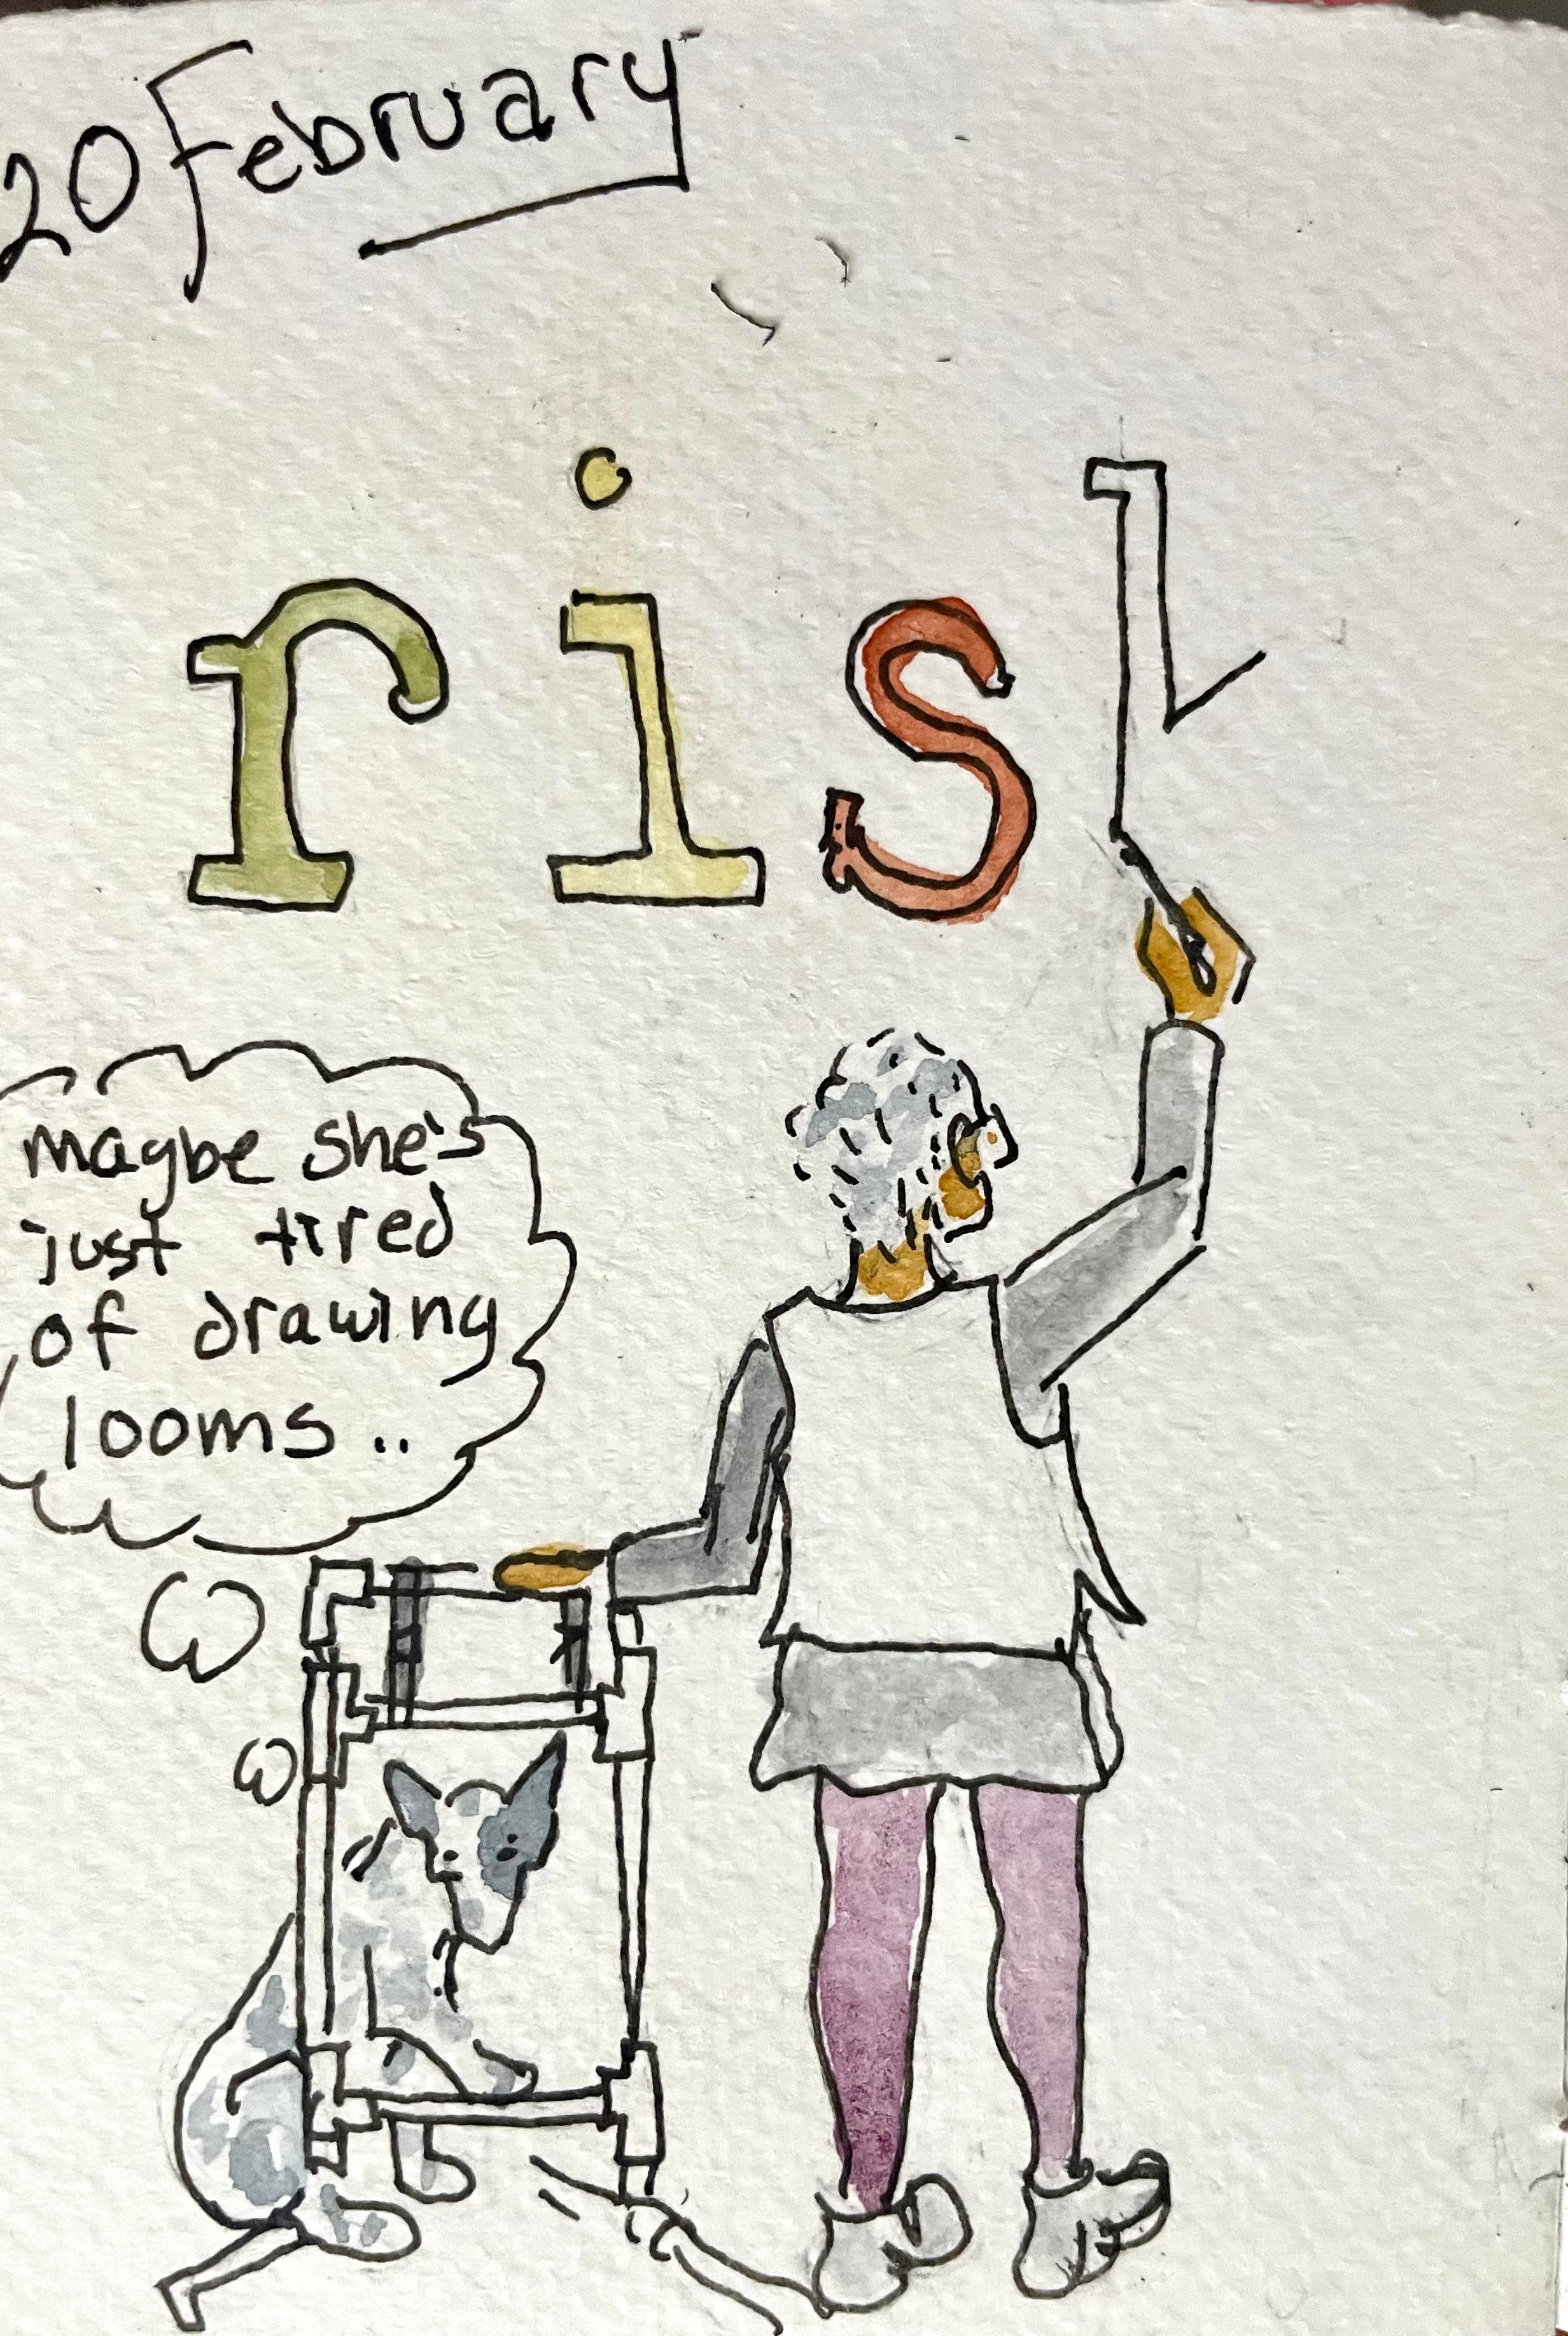 20 February
risk
maybe she's
just tired
of drawing
looms..